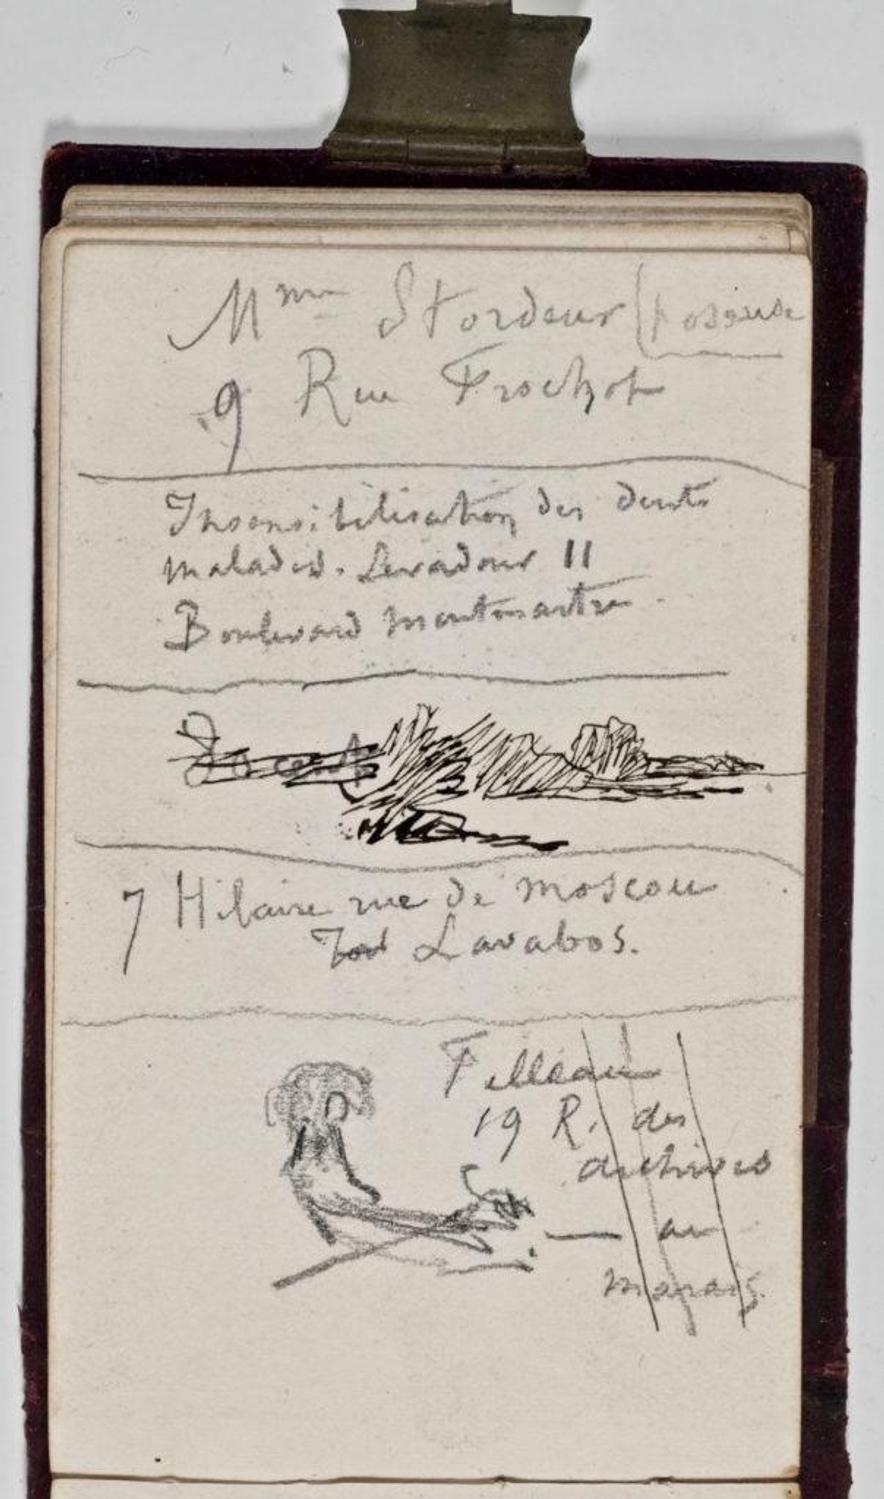 Mme Stordeur (Poseuse
9 Rue Frochot
Insensibilisation des dents
malades. Levadour 11
Boulevard Montmartre.
7 Hilaire rue de Moscou
Lavabos.
Filleau
19 R. des
archives
— au
marais.